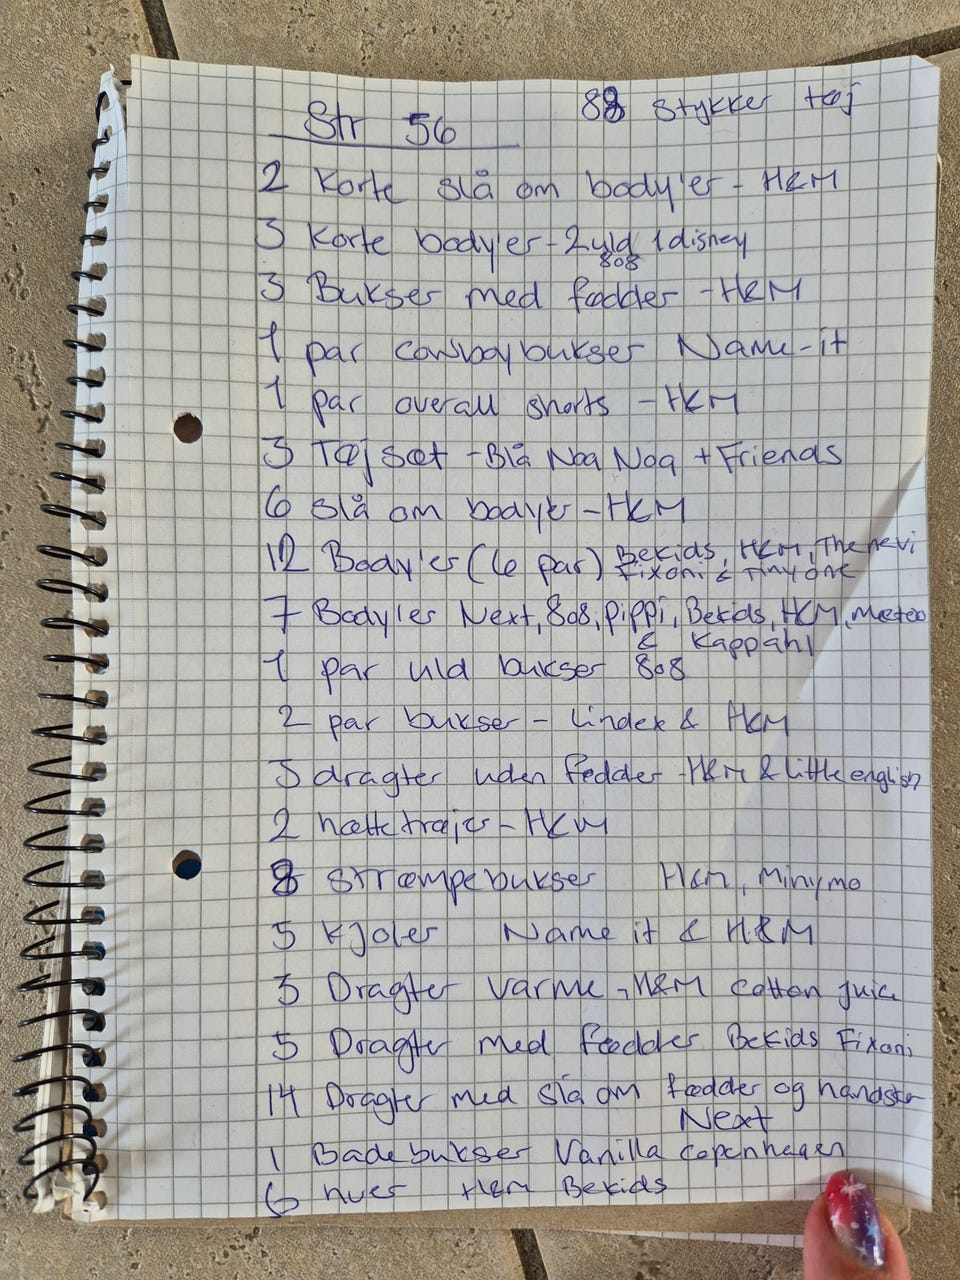 Str 56
88 stykker tøj
2 Korte slå om body'er - H&M
3 Korte body'er - 2 uld 1 disney
808
3 Bukser med fødder - H&M
1 par cowboybukser Name-it
1 par overall shorts - H&M
3 Tøj sæt - Blå Noa Noa + Friends
6 slå om body'er - H&M
12 Body'er (6 par) Bekids, H&M,
Fixoni & Tiny one
7 Body'er Next, 808, pippi, Bekids, H&M,
& Kappahl
1 par uld bukser 808
2 par bukser - Lindex & H&M
dragter uden fødder - H&M & little english
2 hættetrøjer - H&M
8 strømpebukser H&M, Minymo
5 kjoler Name it & H&M
3 Dragter varme - H&M cotton juice
5 Dragter med fødder Bekids Fixoni
14 Dragter med slå om fødder og hænder
Next
1 Badebukser Vanilla copenhagen
6 huer H&M Bekids